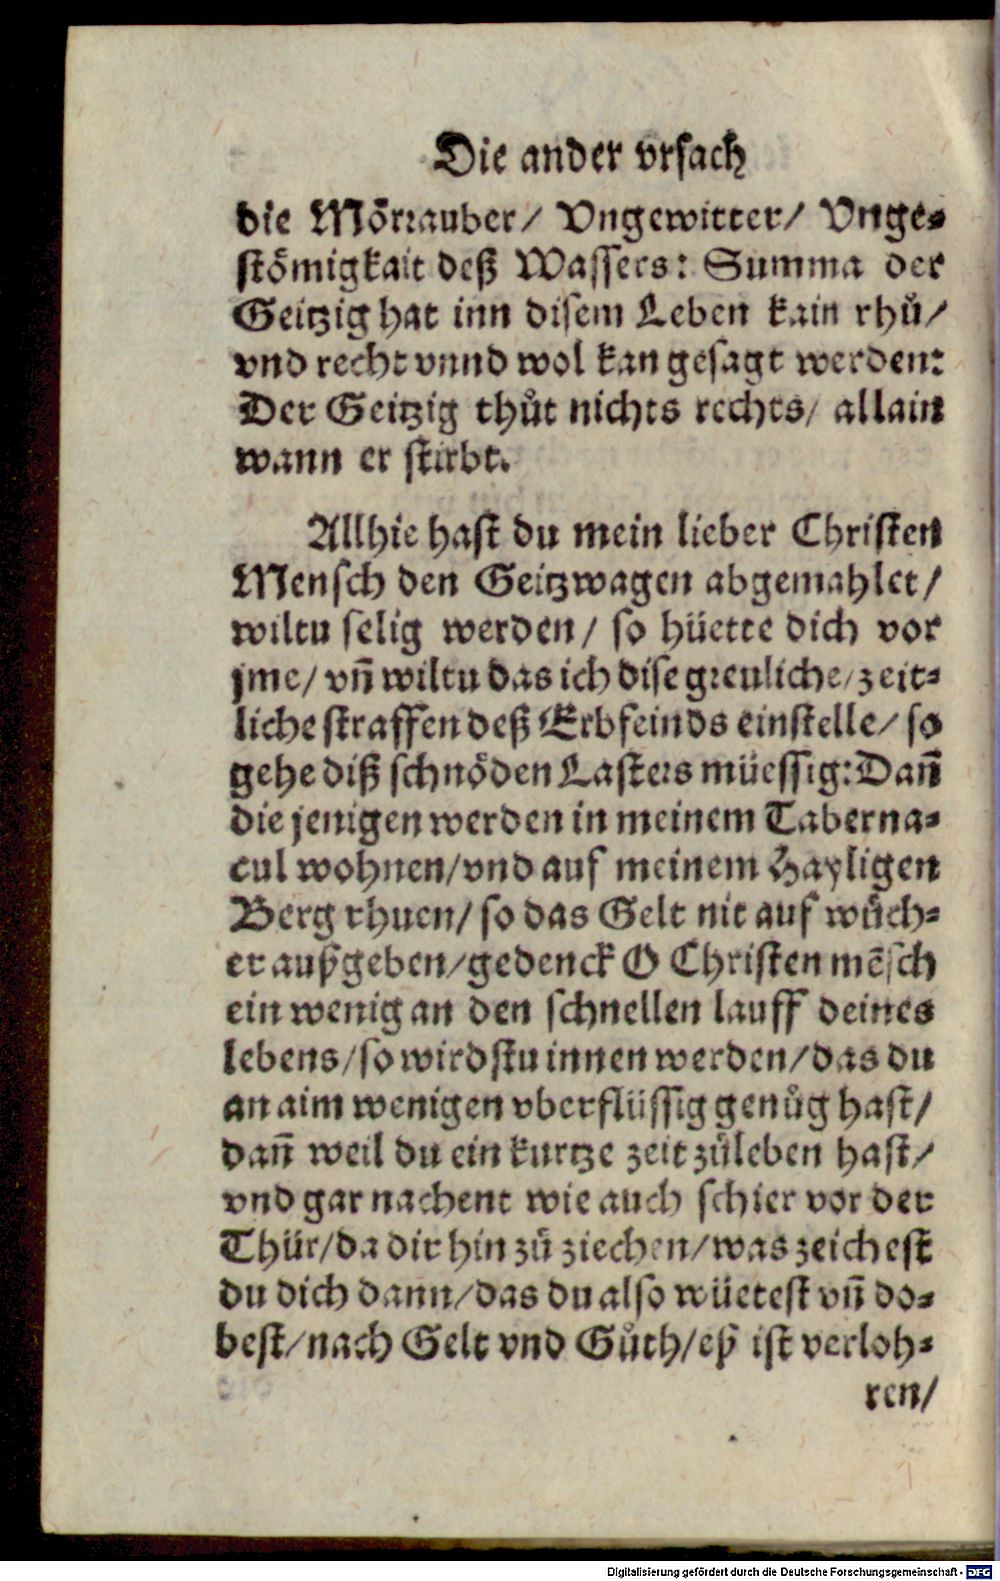 Die ander vrsach
die Mörrauber/ Vngewitter/ Vnge-
stömigkait deß Wassers: Summa der
Geitzig hat inn disem Leben kain rhů/
vnd recht vnnd wol kan gesagt werden:
Der Geitzig thůt nichts rechts/ allain
wann er stirbt.
Allhie hast du mein lieber Christen
Mensch den Geitzwagen abgemahlet/
wiltu selig werden/ so hüette dich vor
jme/ vñ wiltu das ich dise greuliche/ zeit-
liche straffen deß Erbfeinds einstelle/ so
gehe diß schnöden Lasters müessig: Dañ
die jenigen werden in meinem Taberna-
cul wohnen/ vnd auf meinem Hayligen
Berg rhuen/ so das Gelt nit auf wůch-
er außgeben/ gedenck O Christen mẽsch
ein wenig an den schnellen lauff deines
lebens/ so wirdstu innen werden/ das du
an aim wenigen vberflüssig genůg hast/
dañ weil du ein kurtze zeit zůleben hast/
vnd gar nachent wie auch schier vor der
Thür/ da dir hin zů ziechen/ was zeichest
du dich dann/ das du also wüetest vñ do-
best/ nach Gelt vnd Gůth/ eß ist verloh-
ren/
Digitalisierung gefördert durch die Deutsche Forschungsgemeinschaft - DFG